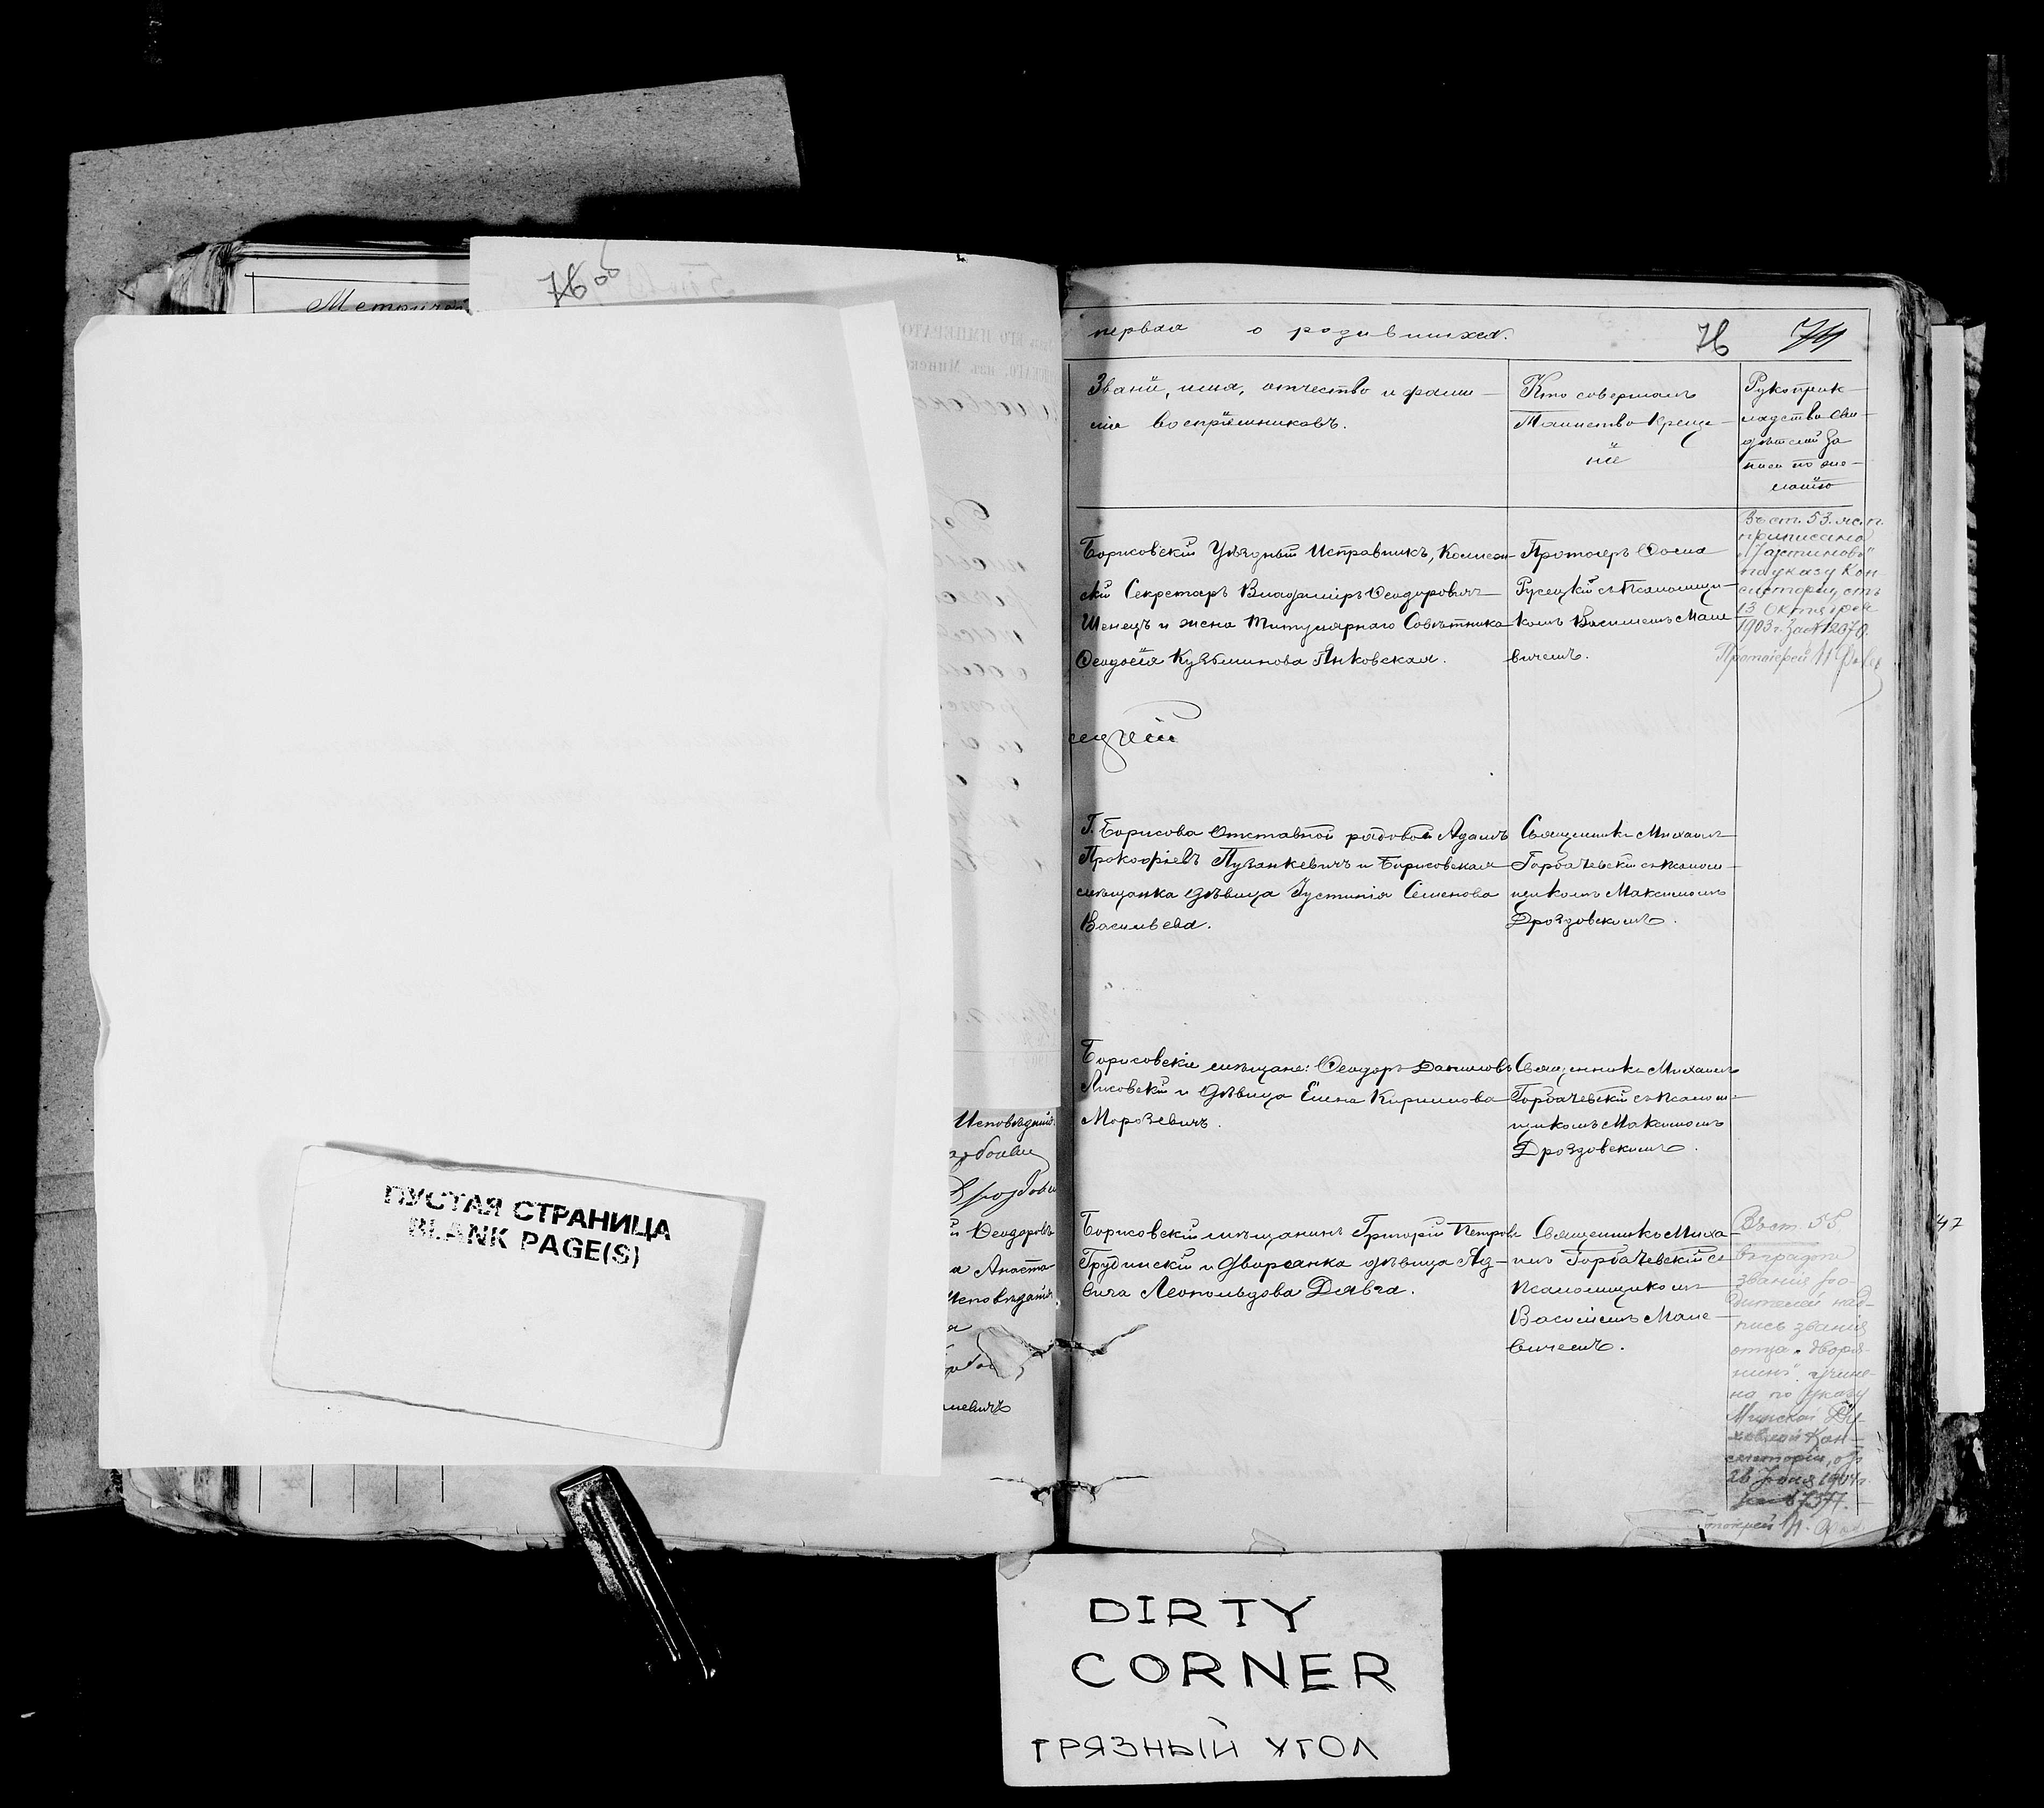 76 об
Метрич
ПУСТАЯ СТРАНИЦА
BLANK PAGE(S)
Исповѣданія
Дроздов
Ѳеодоровъ
а Анаста-
Исповѣданія
левичъ
первая о родившихся.
76 74
Званіе, имя, отчество и фами-
лія воспріемниковъ.
Кто совершалъ
Таинство Креще-
нія
Рукоприк-
ладство сви-
дѣтелей за-
писи по же-
ланію
Борисовскій Уѣздный Исправникъ, Коллеж-
скій Секретарь Владиміръ Ѳеодоровичъ
Шенецъ и жена Титулярнаго Совѣтника
Ѳеодосія Кузьминова Янковская.
Протоіерей Ѳома
Русецкій съ Псаломщи-
комъ Василіемъ Мале-
вичемъ.
Въ ст. 53. м. п.
приписано
по указу Кон
систоріи отъ
13 Октября
1903 г. за № 12070.
Протоіерей
Г. Борисова Отставной рядовой Адамъ
Прокофіевъ Пузанкевичъ и Борисовская
мѣщанка дѣвица Іустинія Семенова
Васильева.
Священникъ Михаилъ
Горбачевскій съ Псалом-
щикомъ Максимомъ
Дроздовскимъ.
Борисовскіе мѣщане: Ѳеодоръ Даниловъ
Лисовскій и дѣвица Елена Кириллова
Морозевичъ.
Священникъ Михаилъ
Горбачевскій съ Псалом-
щикомъ Максимомъ
Дроздовскимъ.
Борисовскій мѣщанинъ Григорій Петровъ
Грудинскій и дворянка дѣвица Яд-
вига Леопольдова Давга.
Священникъ Миха-
илъ Горбачевскій съ
Псаломщикомъ
Василіемъ Мале-
вичемъ.
Въ ст. 55
въ графѣ
званія ро-
дителей над-
пись званія
отца „дворя-
нинъ" учине-
на по указу
Минской Ду-
ховной Кон-
систоріи, отъ
1904 г.
47
DIRTY
CORNER
ГРЯЗНЫЙ УГОЛ